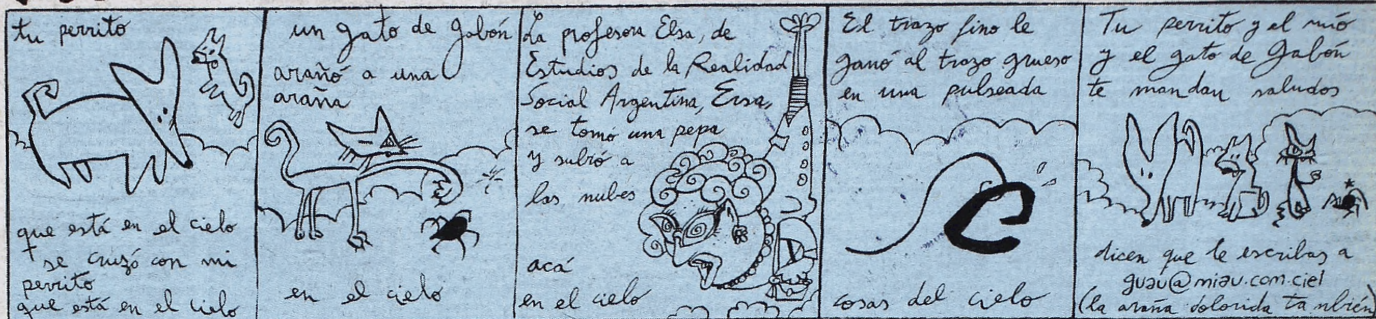 tu perrito
que está en el cielo
se cruzó con mi
perrito
que está en el cielo
un gato de Gabón
arañó a una
araña
en el cielo
La profesora Elsa, de
Estudios de la Realidad
Social Argentina, Ersa,
se tomo una pepa
y subió a
las nubes
acá
en el cielo
El trazo fino le
ganó al trazo grueso
en una pulseada
cosas del cielo
Tu perrito y el mío
y el gato de Gabón
te mandan saludos
dicen que le escribas a
guau@miau.com.ciel
(la araña dolorida también)